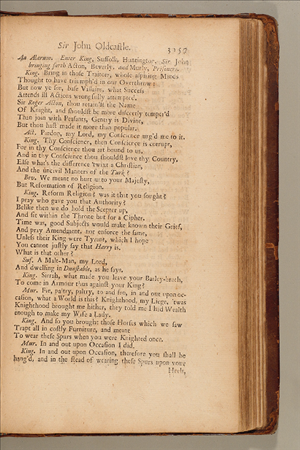 Sir John Oldcastle.
An Alarum. Enter King, Suffolk, Huntington, Sir John
bringing forth Acton, Beverly, and Murly, Prisoners.
King. Bring in those Traitors, whose aspiring Minds
Thought to have triumph'd in our Overthrow.
But now ye see, base Villains, what Success
Attends ill Actions wrongfully attempted.
Sir Roger Acton, thou retain'st the Name
Of Knight, and shouldst be more discreetly temper'd
Than join with Peasants, Gentry is Divine,
But thou hast made it more than popular.
Act. Pardon, my Lord, my Conscience urg'd me to it.
King. Thy Conscience, then Conscience is corrupt,
For in thy Conscience thou art bound to us,
And in thy Conscience thou shouldst love thy Country,
Else what's the difference 'twixt a Christian,
And the uncivil Manners of the Turk?
Bev. We meant no hurt unto your Majesty,
But Reformation of Religion.
King. Reform Religion? was it that you sought?
I pray who gave you that Authority?
Belike then we do hold the Scepter up,
And sit within the Throne but for a Cipher.
Time was, good Subjects would make known their Grief,
And pray Amendment, not enforce the same,
Unless their King were Tyrant, which I hope
You cannot justly say that Harry is.
What is that other?
Suf. A Malt-Man, my Lord,
And dwelling in Dunstable, as he says.
King. Sirrah, what made you leave your Barley-broth,
To come in Armour thus against your King?
Mur. Fie, paltry, paltry, to and fro, in and out upon oc-
casion, what a World is this? Knighthood, my Liege, 'twas
Knighthood brought me hither, they told me I had Wealth
enough to make my Wife a Lady.
King. And so you brought those Horses which we saw
Trapt all in costly Furniture, and meant
To wear these Spurs when you were Knighted once.
Mur. In and out upon Occasion I did.
King. In and out upon Occasion, therefore you shall be
hang'd, and in the stead of wearing these Spurs upon your
Heels,